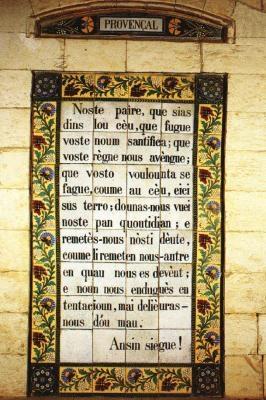 PROVENÇAL
Noste paire, que sias
dins lou cèu, que fugue
voste noum santifica; que
voste règne nous avèngue;
que vosto voulounta se
fague, coume au cèu, eici
sus terro; dounas-nous vuei
noste pan quoutidian; e
remetès-nous nòsti dèute,
coume li remeten nous-autre
en quau nous es devènt;
e noun nous enduguès en
tentacioun, mai delièuras-
nous dóu mau.
Ansin siegue!